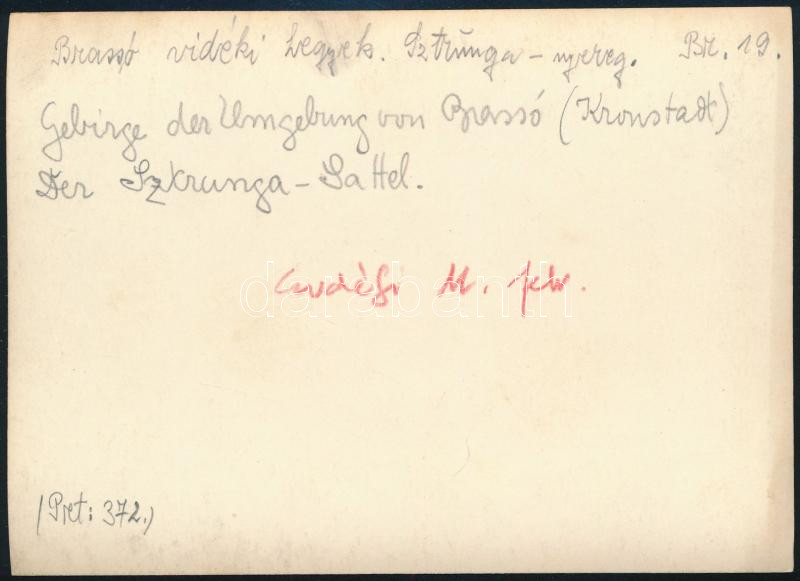 Brassó vidéki hegyek. Sztrunga - nyereg. Br. 19.
Gebirge der Umgebung von Brassó (Kronstadt)
Der Szkrunga - Sattel.
Erdélyi M. felv.
darabanth
(Pret: 372.)